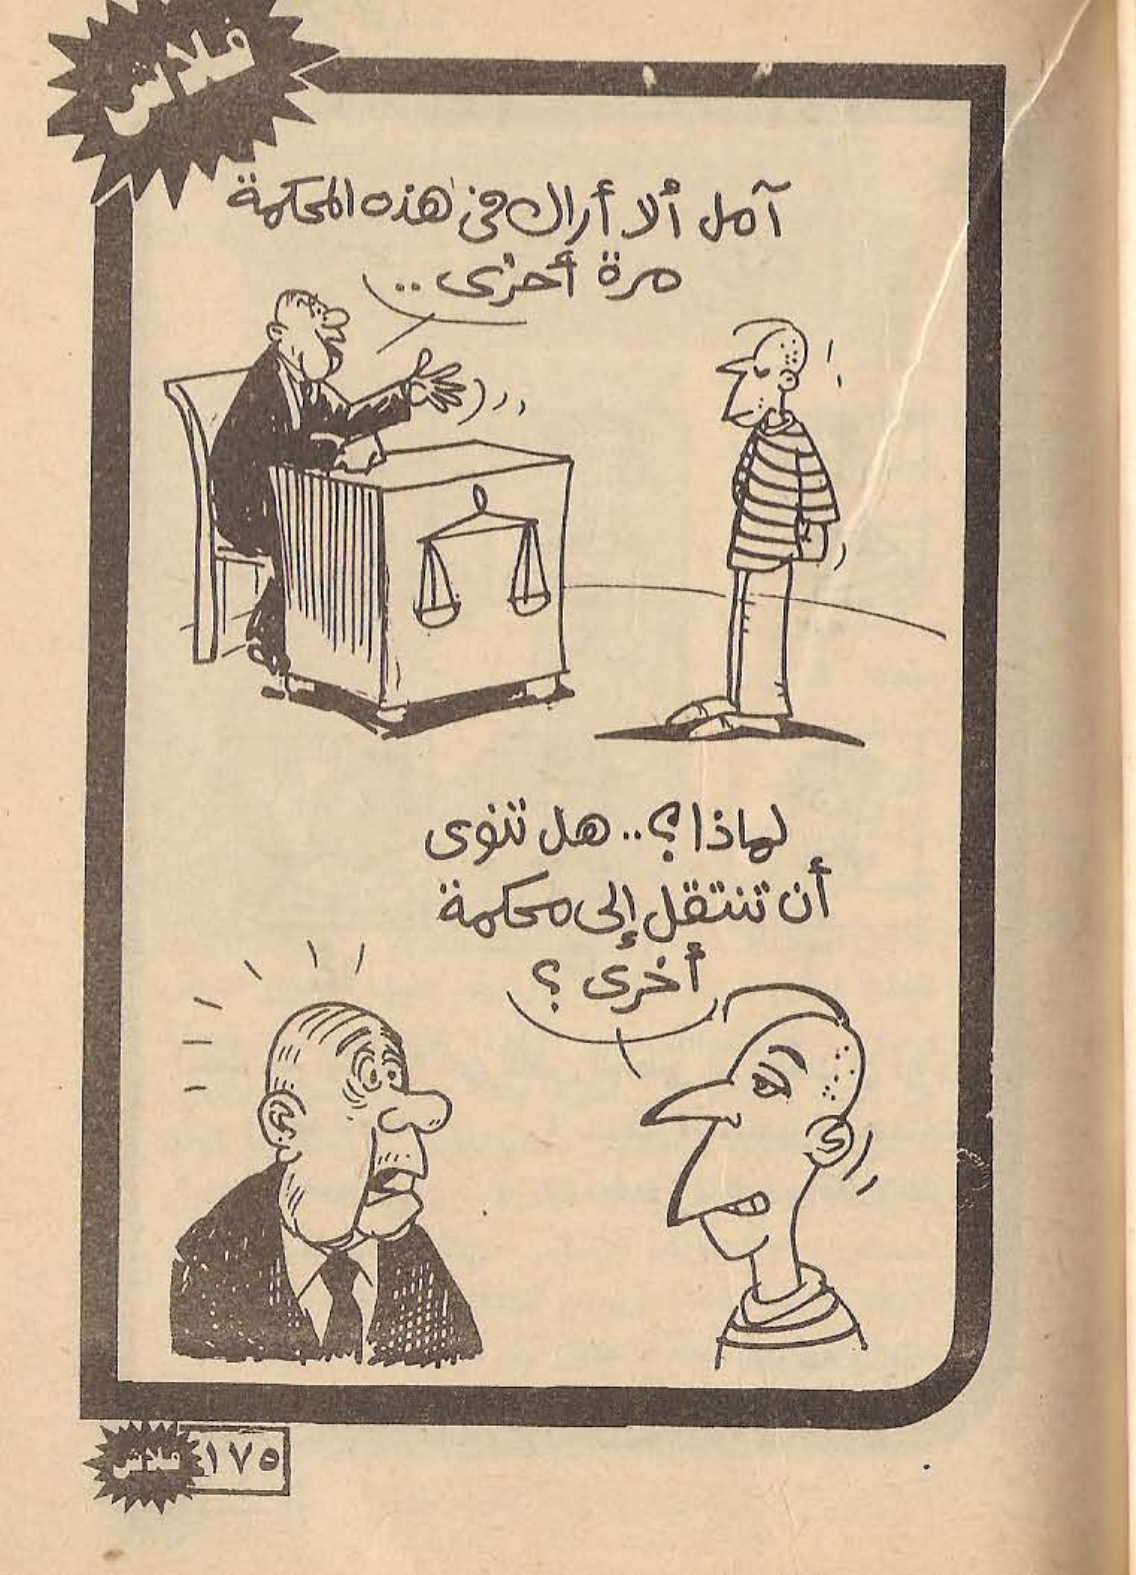 فلاش
آمل ألا أراك فى هذه المحكمة
مرة أخرى ..
لماذا ؟ .. هل تنوى
أن تنتقل إلى محكمة
أخرى ؟
فلاش ١٧٥